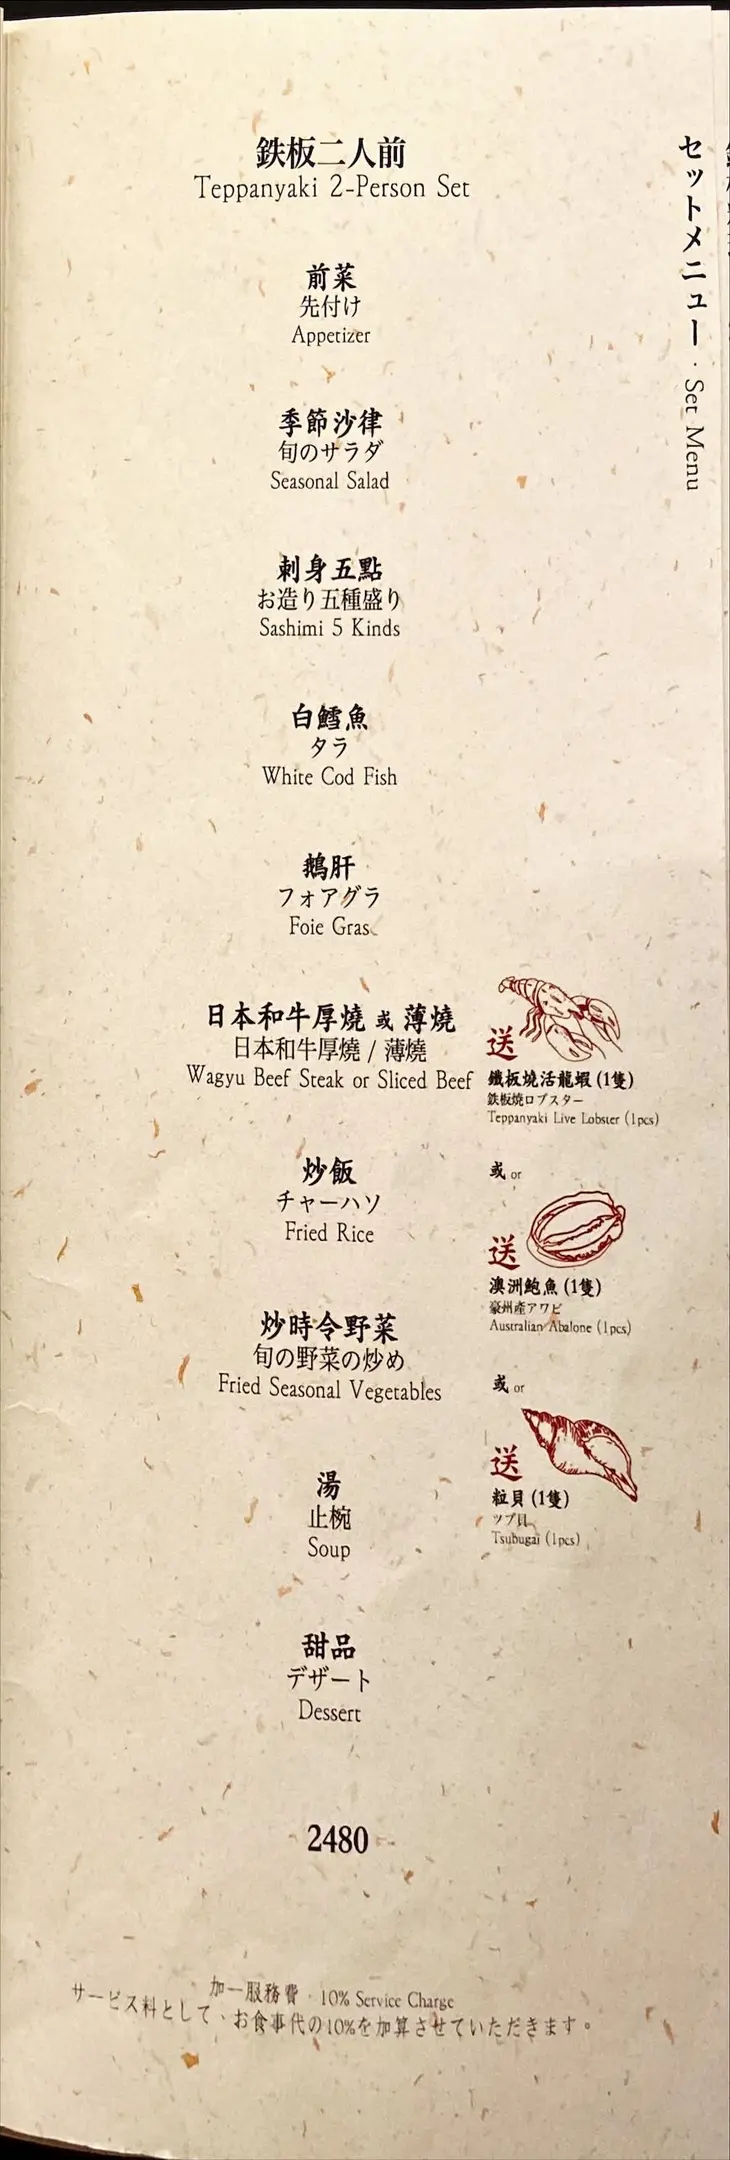 鉄板二人前
Teppanyaki 2-Person Set
セットメニュー · Set Menu
前菜
先付け
Appetizer
季節沙律
旬のサラダ
Seasonal Salad
刺身五點
お造り五種盛り
Sashimi 5 Kinds
白鱈魚
タラ
White Cod Fish
鵝肝
フォアグラ
Foie Gras
日本和牛厚燒 或 薄燒
日本和牛厚燒 / 薄燒
Wagyu Beef Steak or Sliced Beef
送
鐵板燒活龍蝦 (1隻)
鉄板焼ロブスター
Teppanyaki Live Lobster (1pcs)
或 or
送
澳洲鮑魚 (1隻)
豪州産アワビ
Australian Abalone (1pcs)
或 or
送
粒貝 (1隻)
ツブ貝
Tsubugai (1pcs)
炒飯
チャーハソ
Fried Rice
炒時令野菜
旬の野菜の炒め
Fried Seasonal Vegetables
湯
止椀
Soup
甜品
デザート
Dessert
2480
加一服務費 · 10% Service Charge
サービス料として、お食事代の10%を加算させていただきます。